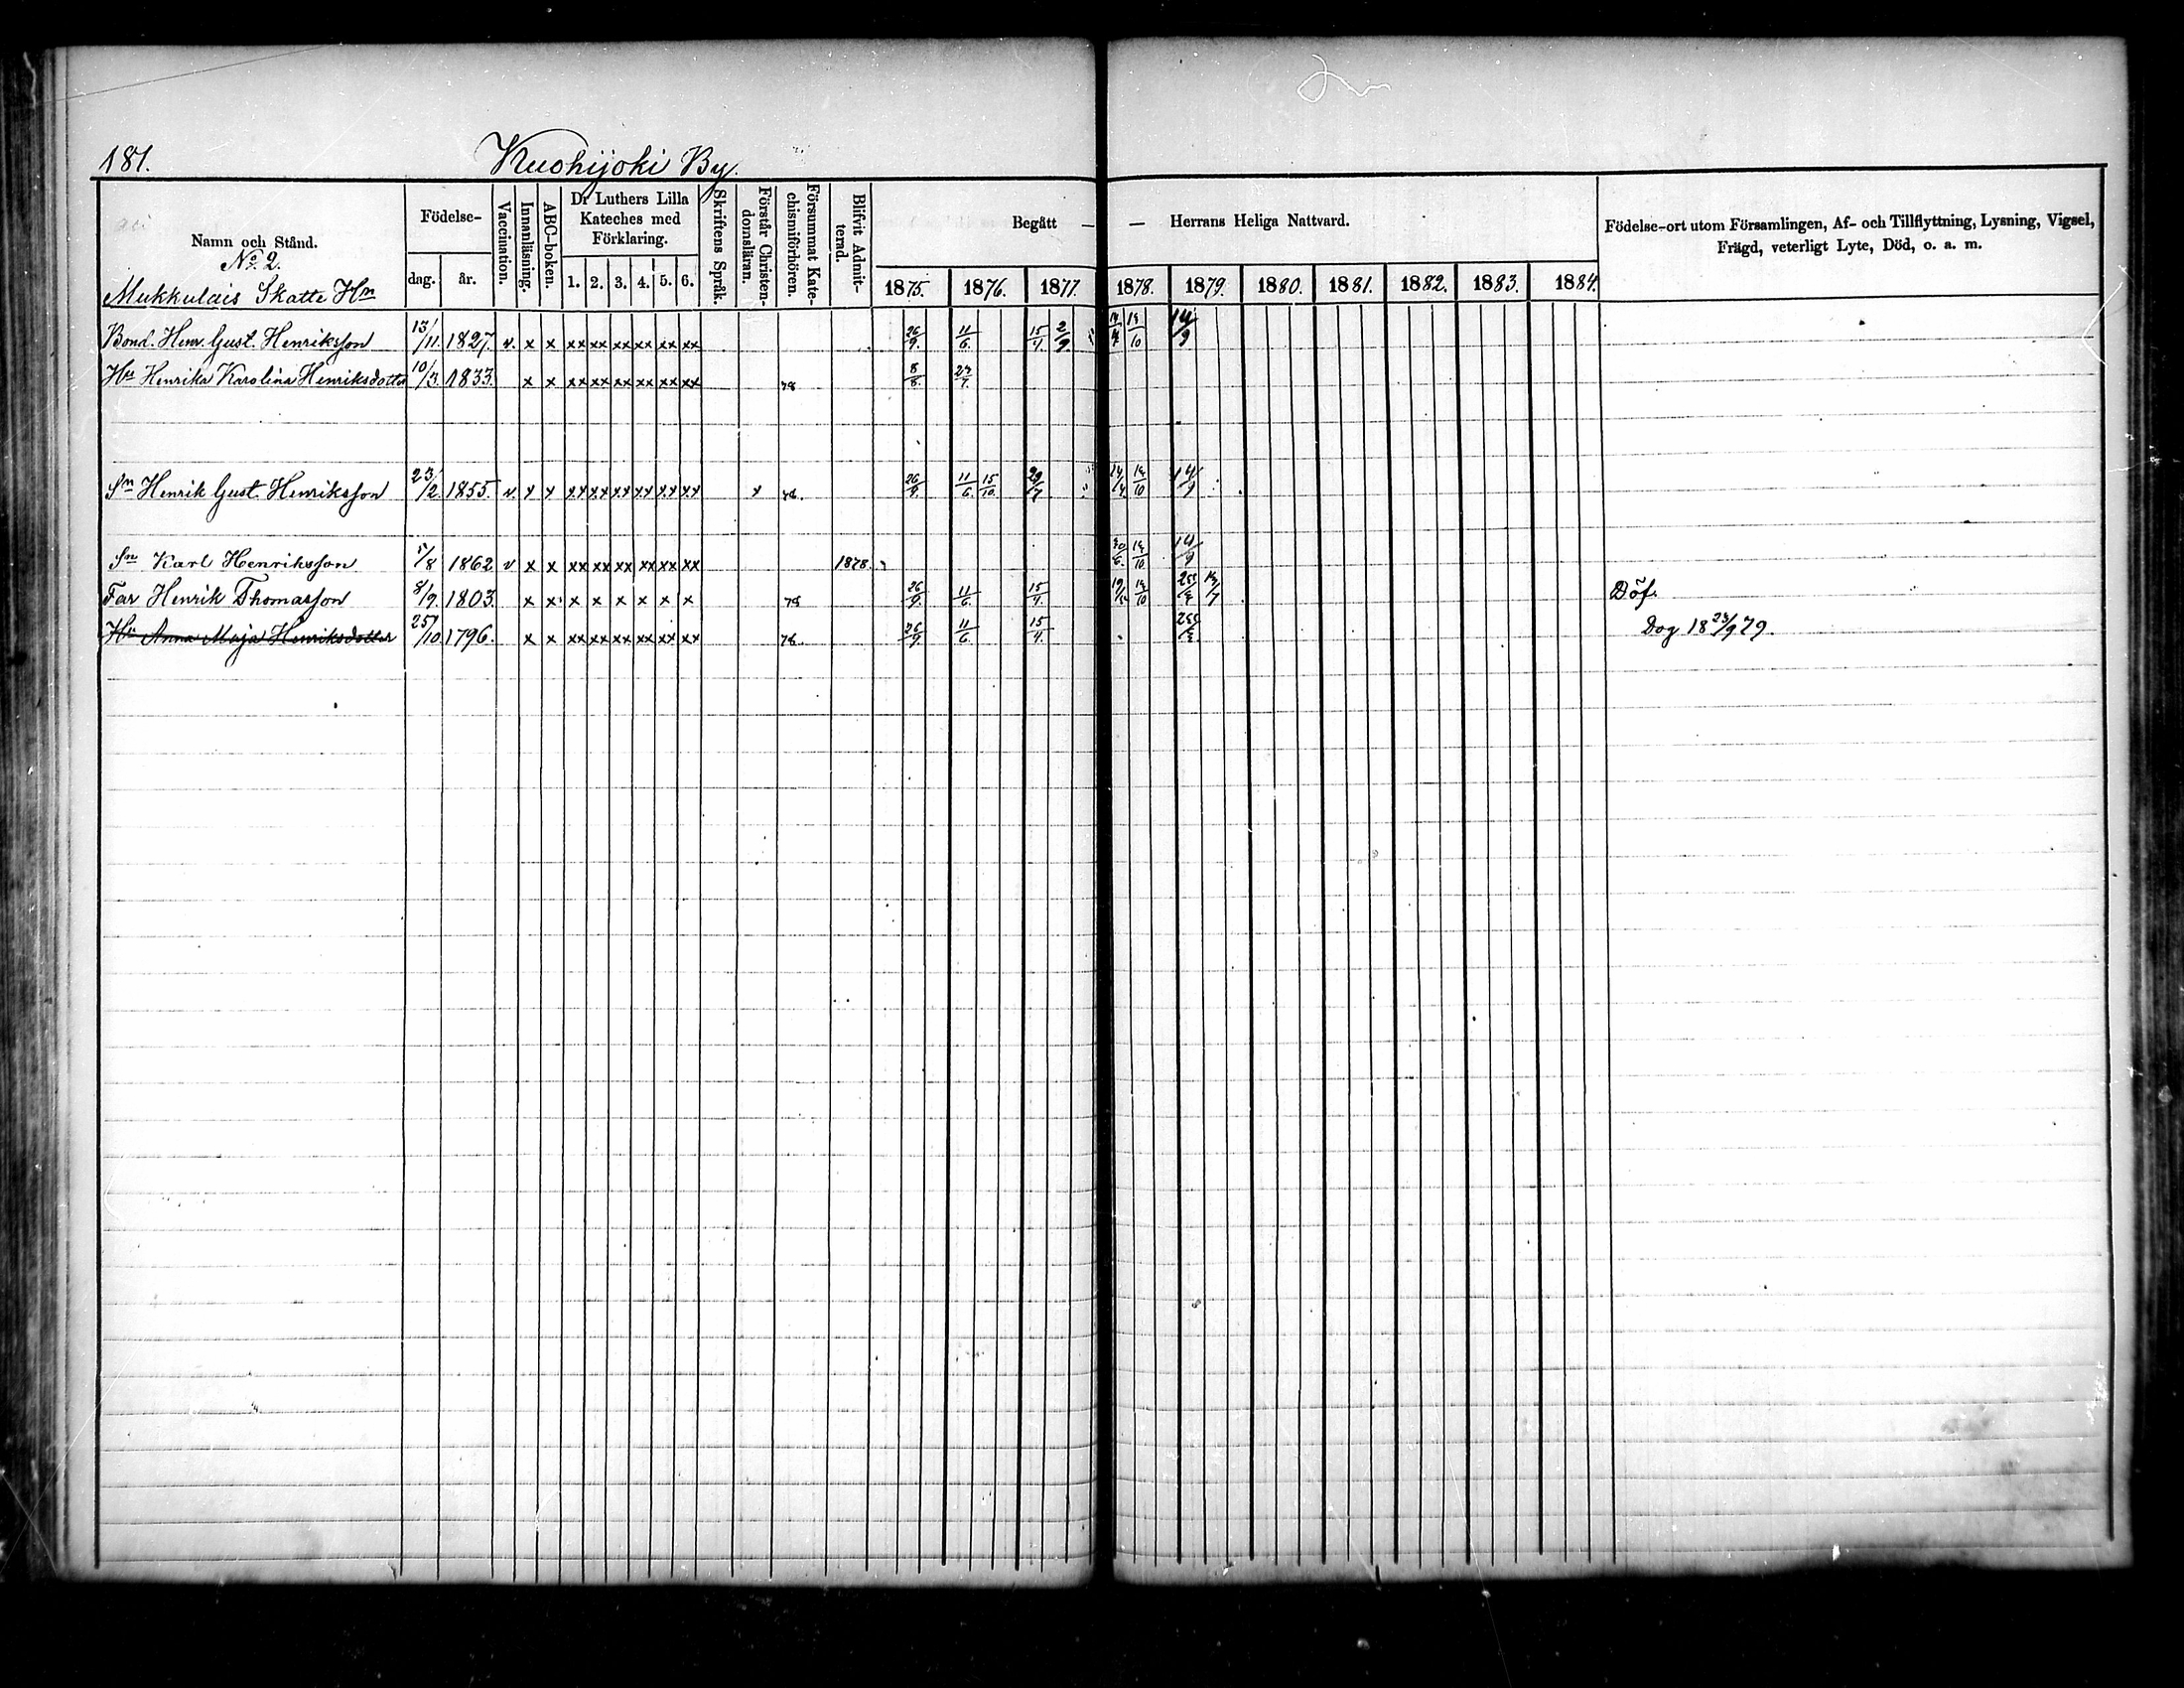 181. Kuohijoki By.
Namn och Stånd.
No 2.
Mukkulais Skatte Hn
Födelse-
dag. år.
Vaccination.
Innanläsning.
ABC-boken.
Dr Luthers Lilla
Kateches med
Förklaring.
1. 2. 3. 4. 5. 6.
Skriftens Språk.
Förstår Christen-
domsläran.
Försummat Kate-
chismiförhören.
Blifvit Admit-
terad.
Begått — — Herrans Heliga Nattvard.
1875. 1876. 1877. 1878. 1879. 1880. 1881. 1882. 1883. 1884.
Födelse-ort utom Församlingen, Af- och Tillflyttning, Lysning, Vigsel,
Frägd, veterligt Lyte, Död, o. a. m.
Bond. Henr. Gust. Henriksson 13/11. 1827. v. x x xx xx xx xx xx xx 26/9. 11/6. 15/4. 2/9. 14/10 14/9
Hu Henrika Karolina Henriksdotter 10/3. 1833. x x xx xx xx xx xx xx 78 8/8.
Sn Henrik Gust. Henriksson 23/2. 1855. v. x x xx xx xx xx xx xx x 76. 26/9. 11/6. 15/10. 14/10 14/9
Sn Karl Henriksson 5/8 1862 v x x xx xx xx xx xx xx 1878. 30/6. 14/10 14/9
Far Henrik Thomasson 8/9. 1803. x x x x x x x x 78 26/9. 11/6. 15/4. 14/10 Döf.
Hu Anna Maja Henriksdotter 25/10. 1796. x x xx xx xx xx xx xx 76. 26/9. 11/6. 15/4. Dog 18 23/9 79.